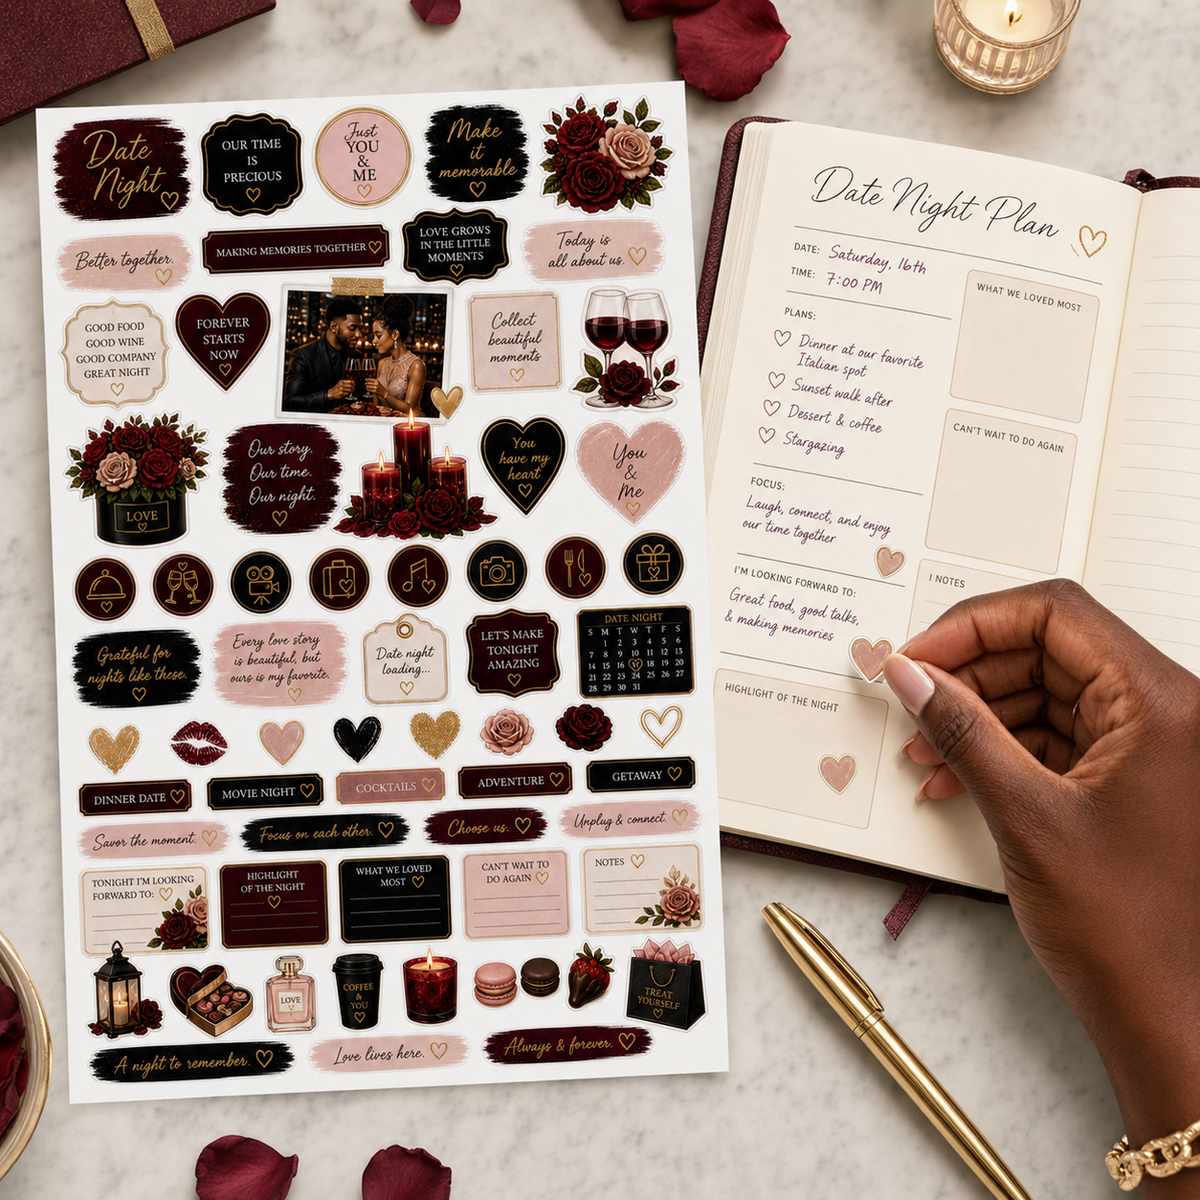 Date
Night
OUR TIME
IS
PRECIOUS
Just
YOU
&
ME
Make
it
memorable
Better together.
MAKING MEMORIES TOGETHER
LOVE GROWS
IN THE LITTLE
MOMENTS
Today is
all about us.
GOOD FOOD
GOOD WINE
GOOD COMPANY
GREAT NIGHT
FOREVER
STARTS
NOW
Collect
beautiful
moments
LOVE
Our story.
Our time.
Our night.
You
have my
heart
You
&
Me
Grateful for
nights like these.
Every love story
is beautiful, but
ours is my favorite.
Date night
loading...
LET'S MAKE
TONIGHT
AMAZING
DATE NIGHT
S M T W T F S
1 2 3 4 5 6
7 8 9 10 11 12 13
14 15 16 18 19 20
21 22 23 24 25 26 27
28 29 30 31
DINNER DATE
MOVIE NIGHT
COCKTAILS
ADVENTURE
GETAWAY
Savor the moment.
Focus on each other.
Choose us.
Unplug & connect.
TONIGHT I'M LOOKING
FORWARD TO:
HIGHLIGHT
OF THE NIGHT
WHAT WE LOVED
MOST
CAN'T WAIT TO
DO AGAIN
NOTES
LOVE
COFFEE
&
YOU
TREAT
YOURSELF
A night to remember.
Love lives here.
Always & forever.
Date Night Plan
DATE: Saturday, 16th
TIME: 7:00 PM
PLANS:
Dinner at our favorite
Italian spot
Sunset walk after
Dessert & coffee
Stargazing
FOCUS:
Laugh, connect, and enjoy
our time together
I'M LOOKING FORWARD TO:
Great food, good talks,
& making memories
HIGHLIGHT OF THE NIGHT
WHAT WE LOVED MOST
CAN'T WAIT TO DO AGAIN
NOTES